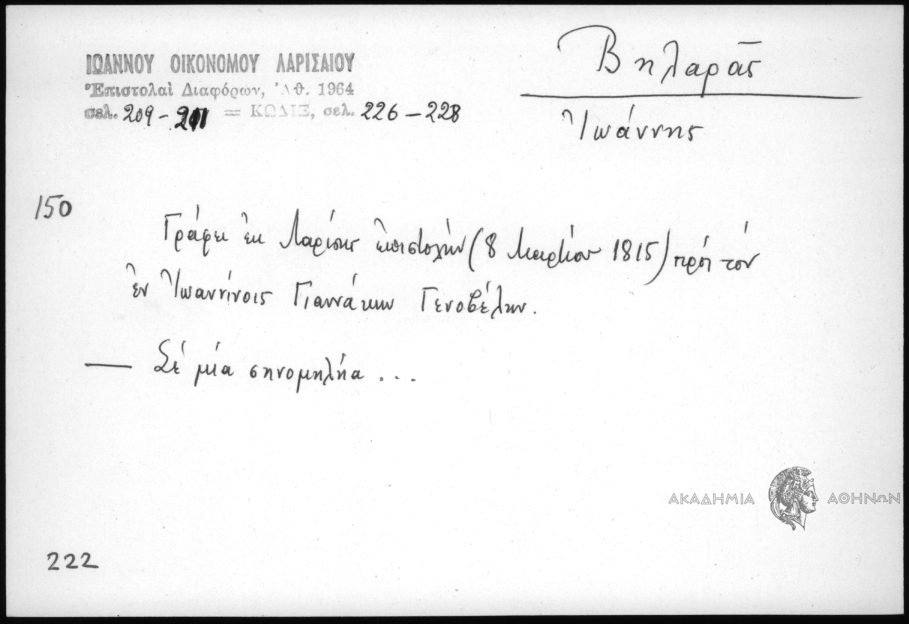 ΙΩΑΝΝΟΥ ΟΙΚΟΝΟΜΟΥ ΛΑΡΙΣΑΙΟΥ
Ἐπιστολαὶ Διαφόρων, Ἀθ. 1964
σελ. 209 - 211 = ΚΩΔΙΞ, σελ. 226 - 228
Βηλαρᾶς
Ἰωάννης
150
Γράφει ἐκ Λαρίσης ἐπιστολὴν (8 Μαρτίου 1815) πρὸς τὸν
ἐν Ἰωαννίνοις Γιαννάκην Γενοβέλην.
— Σὲ μία σηνομηλήα ...
ΑΚΑΔΗΜΙΑ ΑΘΗΝΩΝ
222